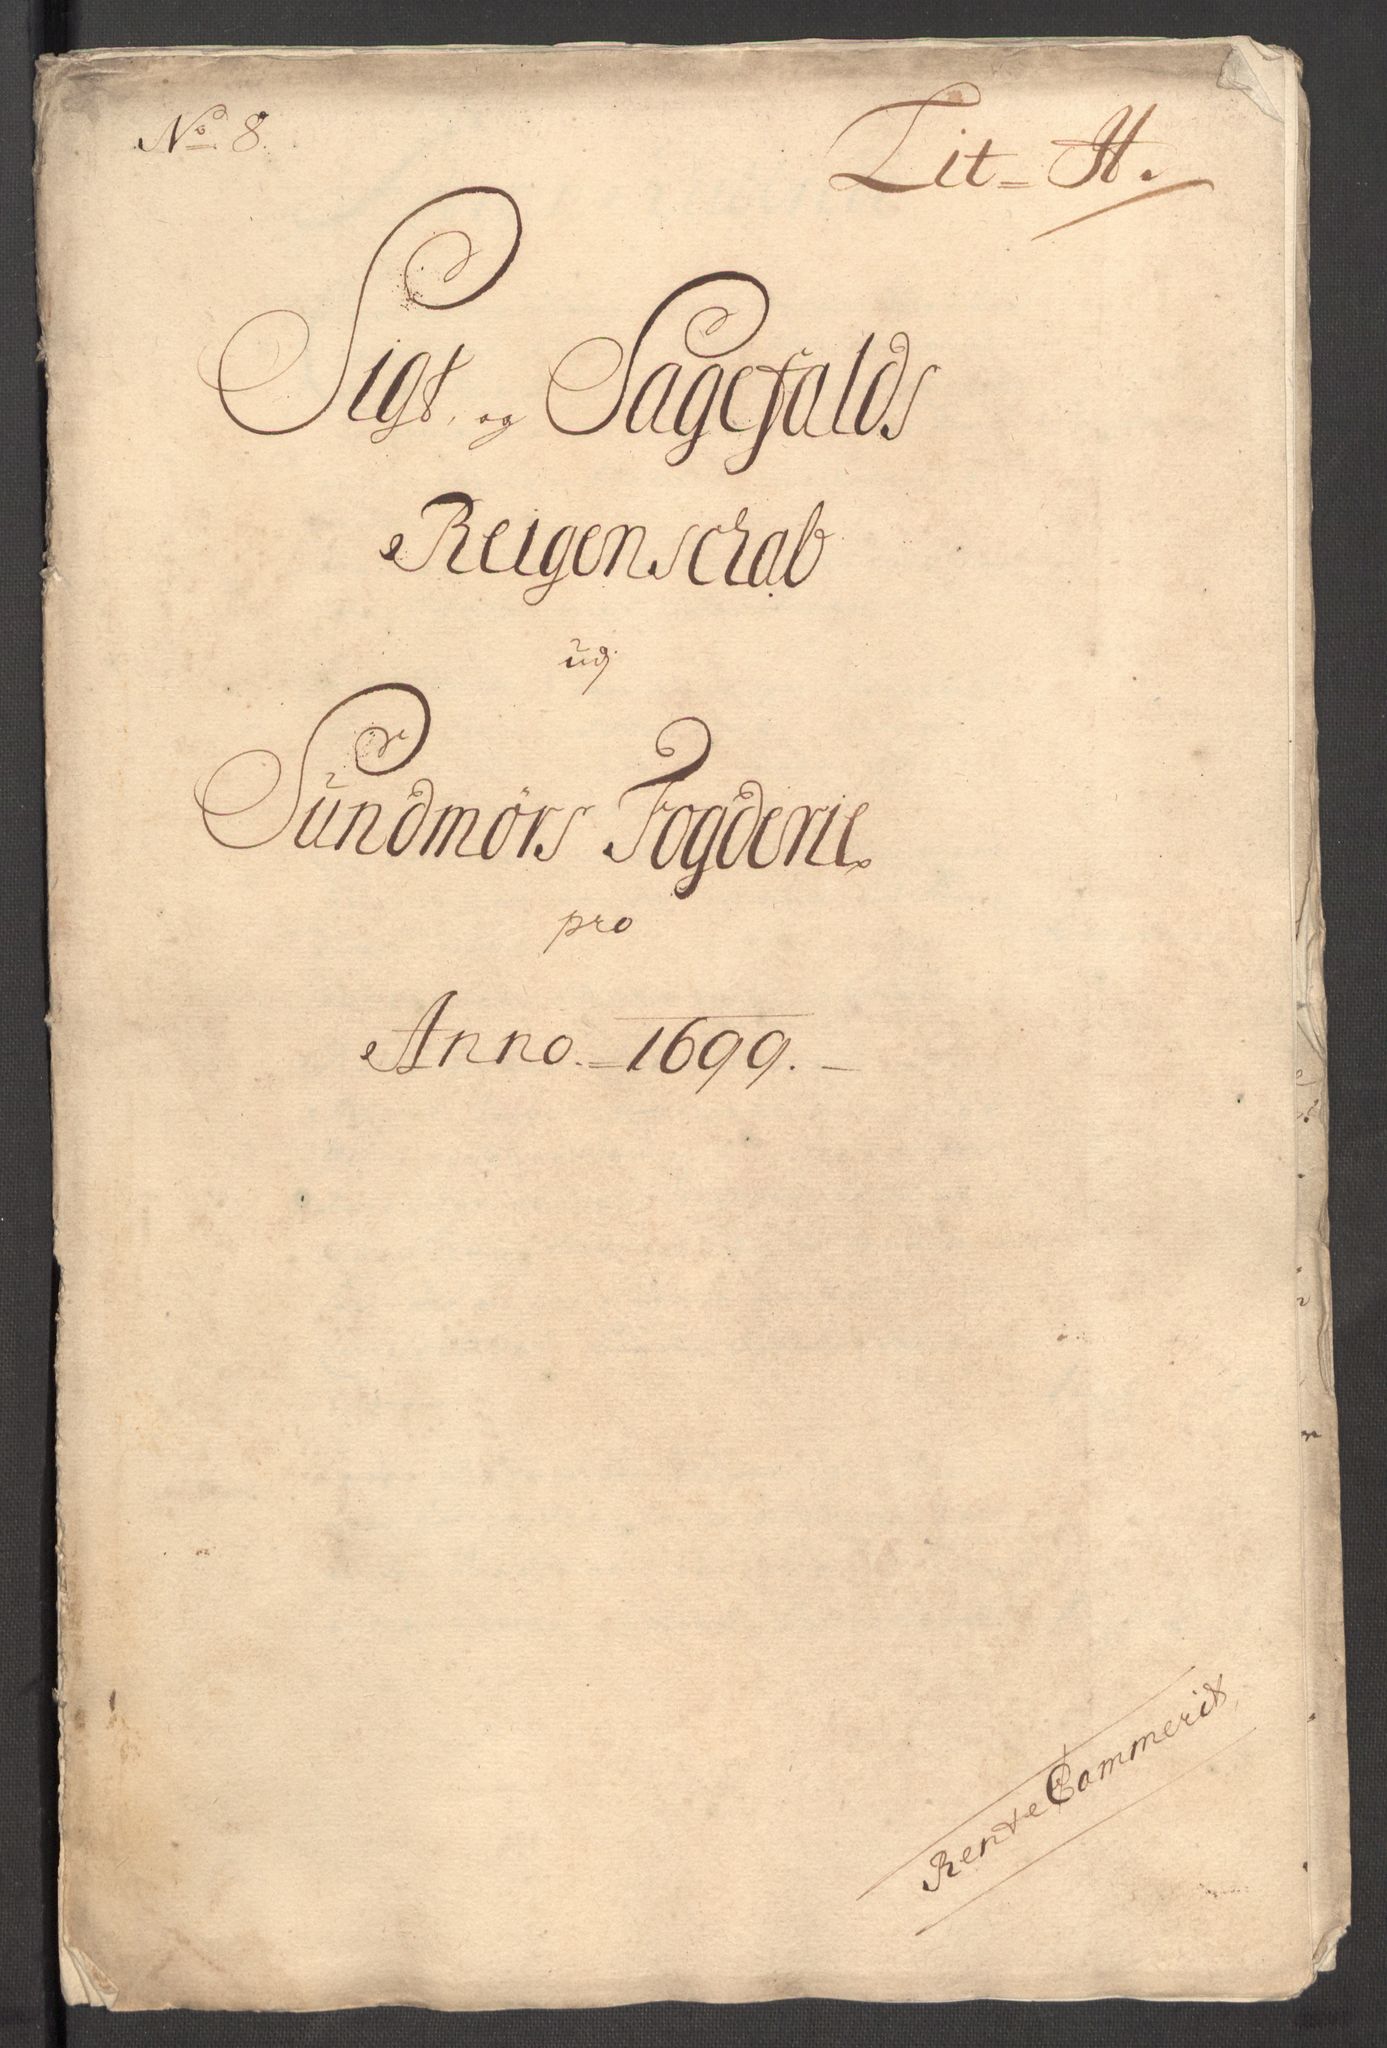 No 8.
Lit = H.
Sigt, og Sagefalds
Reigenschab
udj
Sundmørs Fogderie.
pro
Anno. = 1699. -
Rente Cammerit